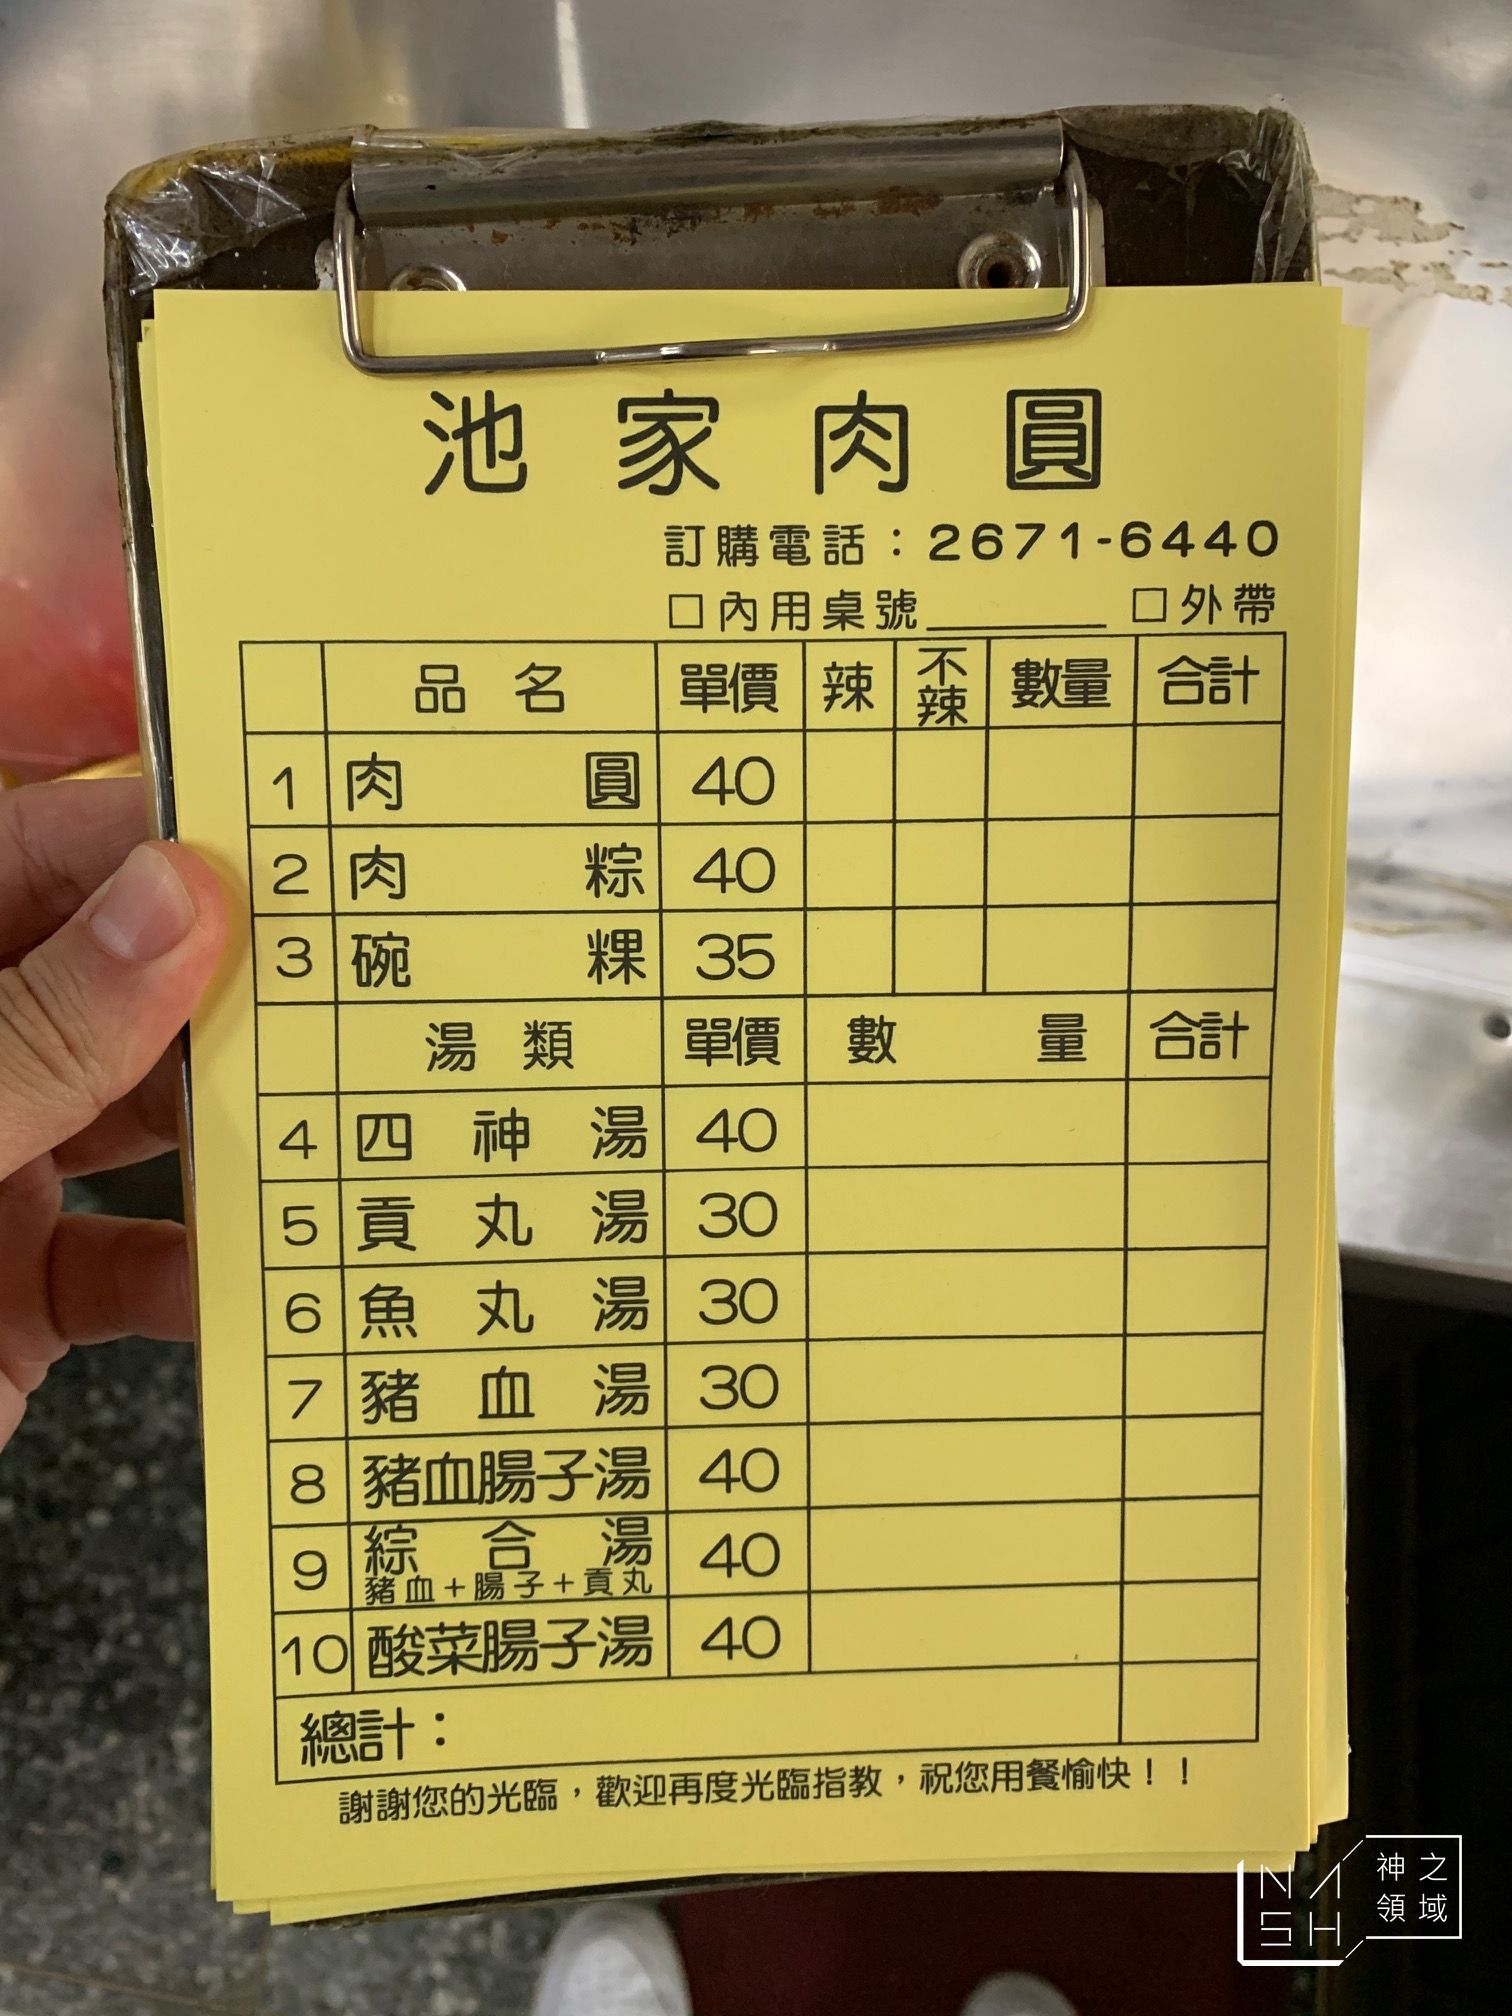 池家肉圓
訂購電話：2671-6440
□內用桌號______ □外帶
品名 單價 辣 不辣 數量 合計
1 肉圓 40
2 肉粽 40
3 碗粿 35
湯類 單價 數量 合計
4 四神湯 40
5 貢丸湯 30
6 魚丸湯 30
7 豬血湯 30
8 豬血腸子湯 40
9 綜合湯 40
豬血+腸子+貢丸
10 酸菜腸子湯 40
總計：
謝謝您的光臨，歡迎再度光臨指教，祝您用餐愉快！！
NASH 神之領域